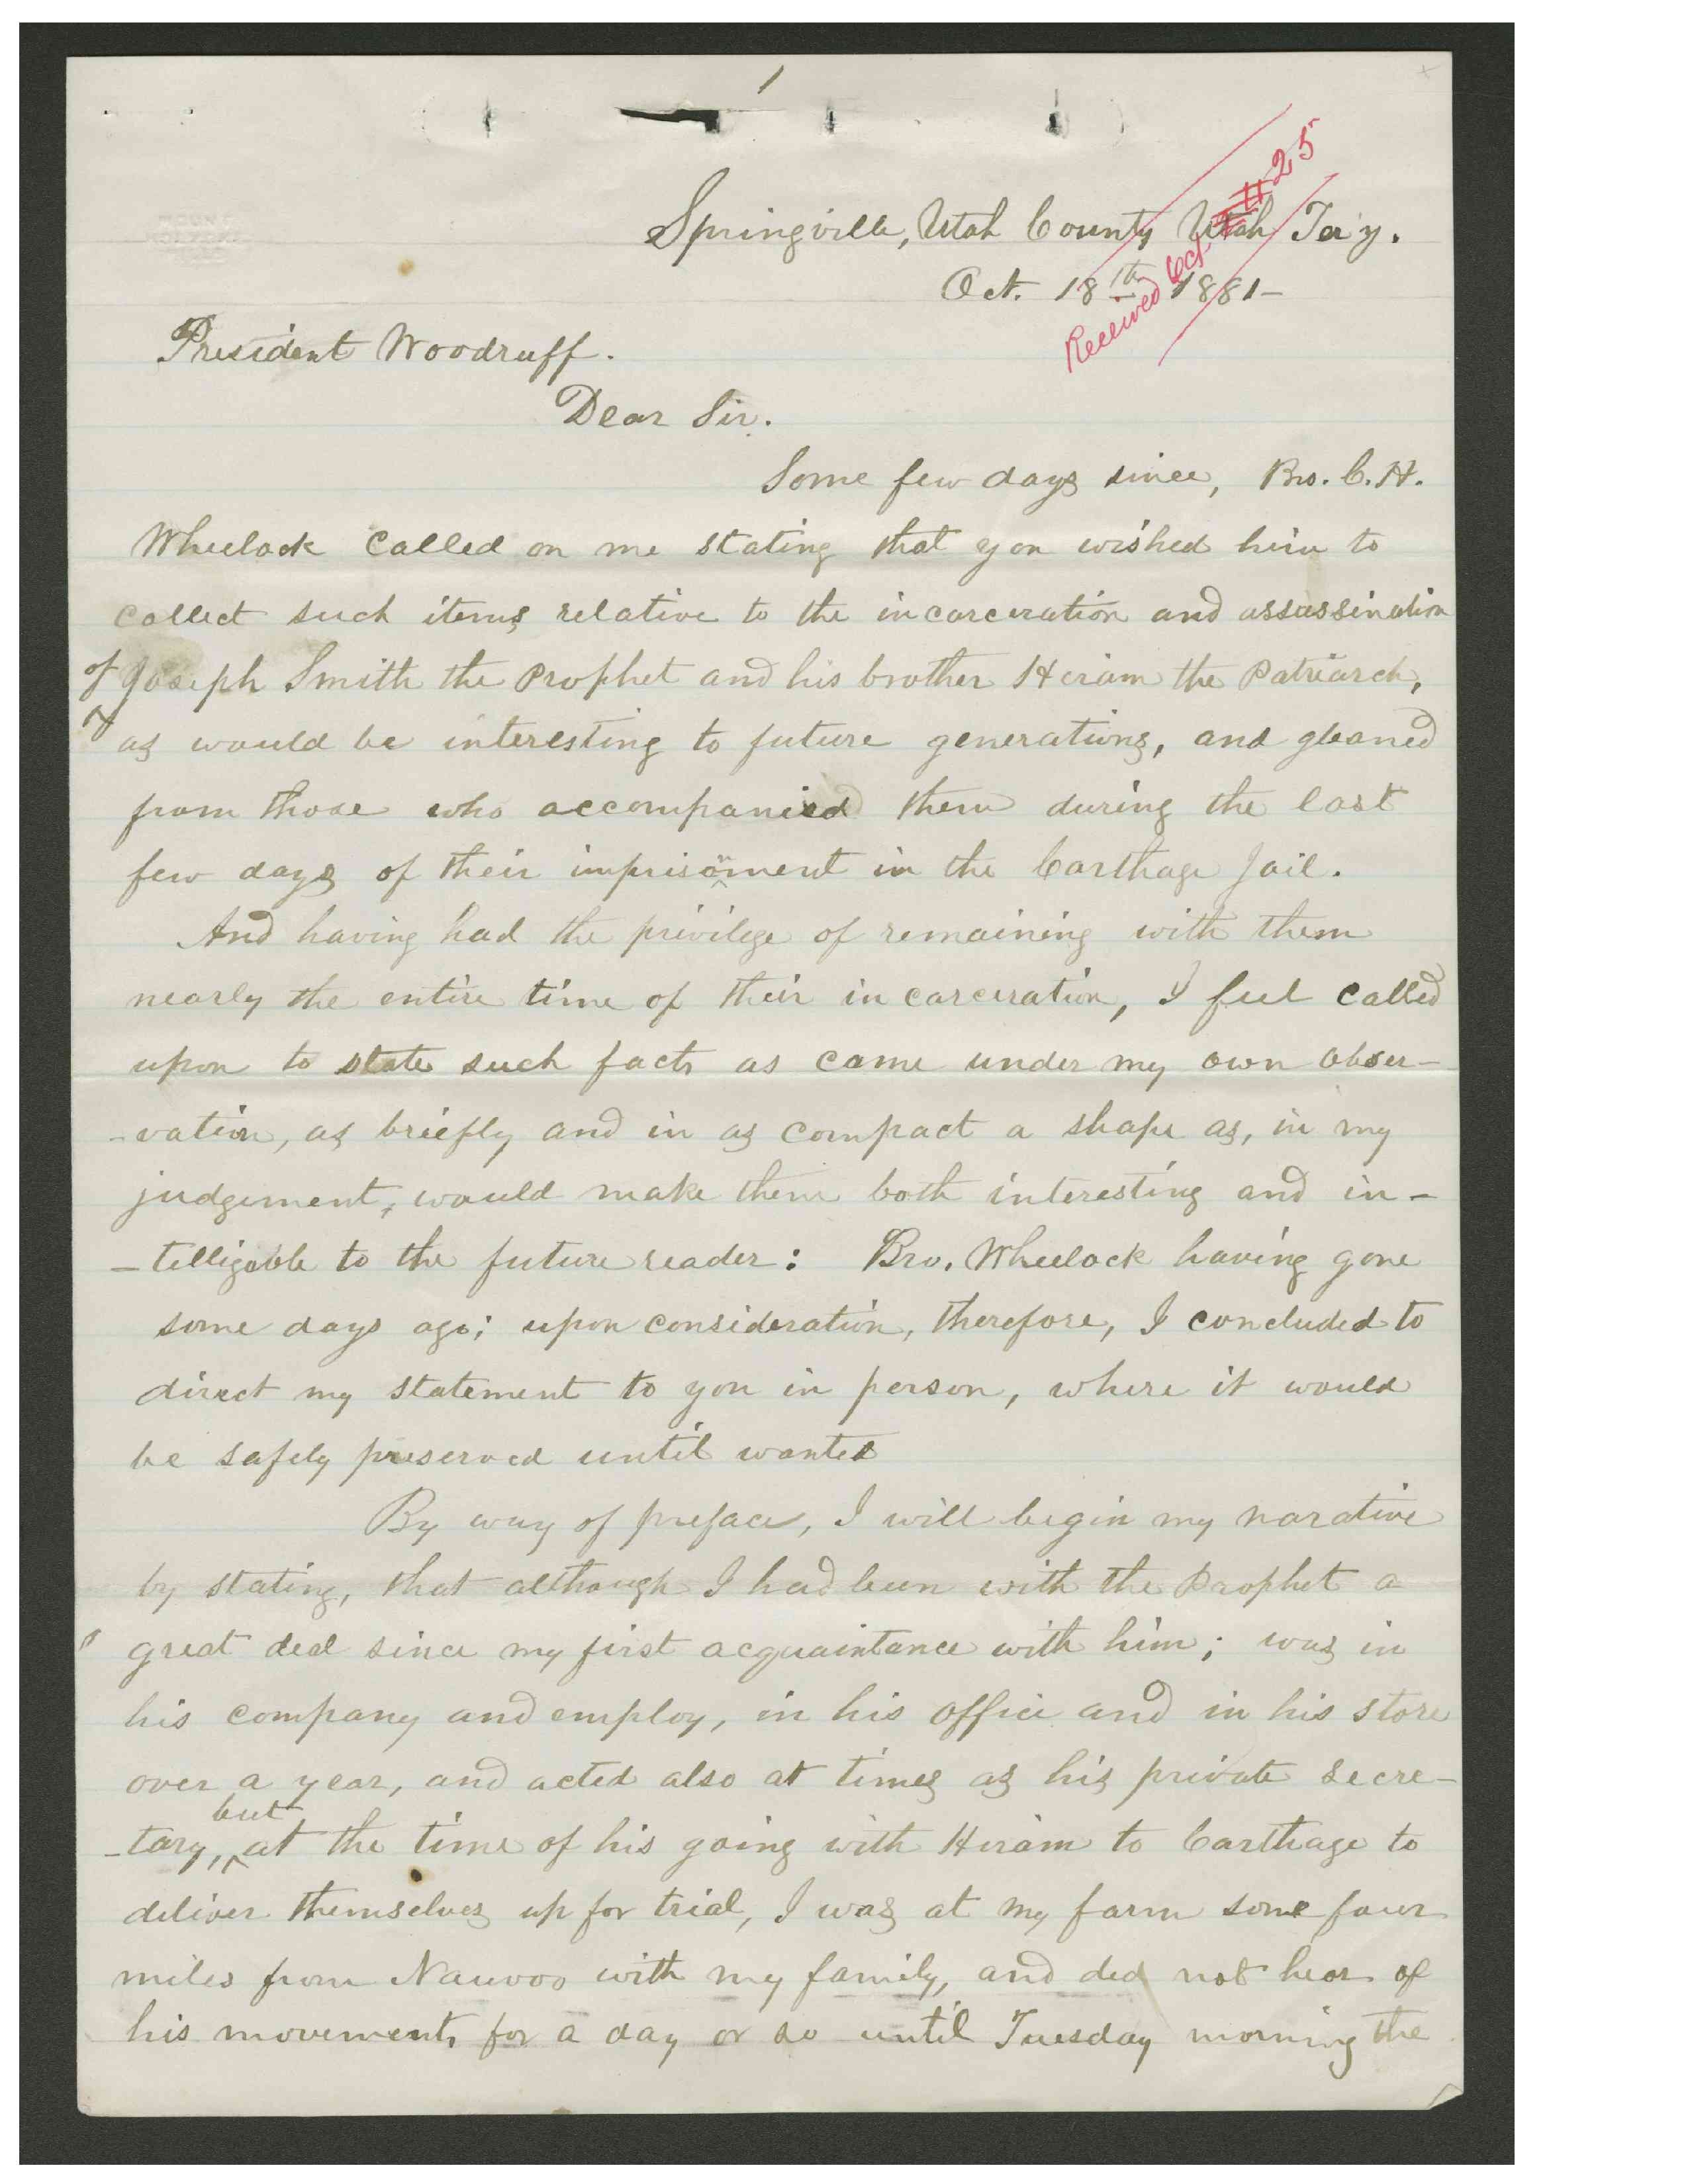 1
Springville, Utah County Utah Ter'y.
Oct. 18th 1881-
Received Oct. 25
President Woodruff.
Dear Sir.
Some few days since, Bro. C. H.
Wheelock called on me stating that you wished him to
collect such items relative to the incarceration and assassination
of Joseph Smith the Prophet and his brother Hiram the Patriarch,
as would be interesting to future generations, and gleaned
from those who accompanied them during the last
few days of their imprisonment in the Carthage Jail.
And having had the privilege of remaining with them
nearly the entire time of their incarceration, I feel called
upon to state such facts as came under my own obser-
-vation, as briefly and in as compact a shape as, in my
judgement, would make them both interesting and in-
-telligable to the future reader: Bro. Wheelock having gone
some days ago; upon consideration, therefore, I concluded to
direct my statement to you in person, where it would
be safely preserved until wanted
By way of preface, I will begin my narative
by stating, that although I had been with the Prophet a
great deal since my first acquaintance with him; was in
his company and employ, in his office and in his store
over a year, and acted also at times as his private secre-
but
-tary, ^ at the time of his going with Hiram to Carthage to
deliver themselves up for trial, I was at my farm some four
miles from Nauvoo with my family, and did not hear of
his movements for a day or so until Tuesday morning the